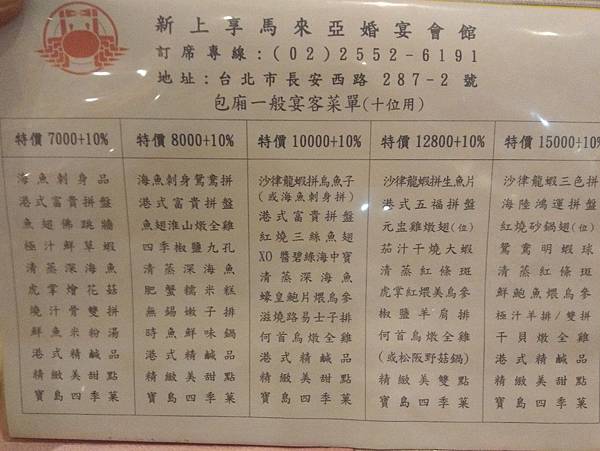 新上享馬來亞婚宴會館
訂席專線:(02)2552-6191
地址:台北市長安西路 287-2 號
包廂一般宴客菜單(十位用)
特價 7000+10%
海魚刺身品
港式富貴拼盤
魚翅佛跳牆
極汁鮮草蝦
清蒸深海魚
虎掌燴花菇
燒汁骨雙拼
鮮魚米粉湯
港式精鹹品
精緻美甜點
寶島四季菓
特價 8000+10%
海魚刺身鴛鴦拼
港式富貴拼盤
魚翅淮山燉全雞
四季椒鹽九孔
清蒸深海魚
肥蟹糯米糕
無錫嫩子排
時魚鮮味鍋
港式精鹹品
精緻美甜點
寶島四季菓
特價 10000+10%
沙律龍蝦拼烏魚子
(或海魚刺身拼)
港式富貴拼盤
紅燒三絲魚翅
XO 醬碧綠海中寶
清蒸深海魚
蠔皇鮑片煨烏參
滋燒路易士子排
何首烏燉全雞
港式精鹹品
精緻美甜點
寶島四季菓
特價 12800+10%
沙律龍蝦拼生魚片
港式五福拼盤
元盅雞燉翅(位)
茄汁干燒大蝦
清蒸紅條斑
虎掌紅煨美烏參
椒鹽羊肩排
何首烏燉全雞
(或松阪野菇鍋)
精緻美雙點
寶島四季菓
特價 15000+10%
沙律龍蝦三色拼
海陸鴻運拼盤
紅燒砂鍋翅(位)
鴛鴦明蝦球
清蒸紅條斑
鮮鮑魚煨烏參
極汁羊排/雙拼
干貝燉全雞
港式精鹹品
精緻美甜點
寶島四季菓